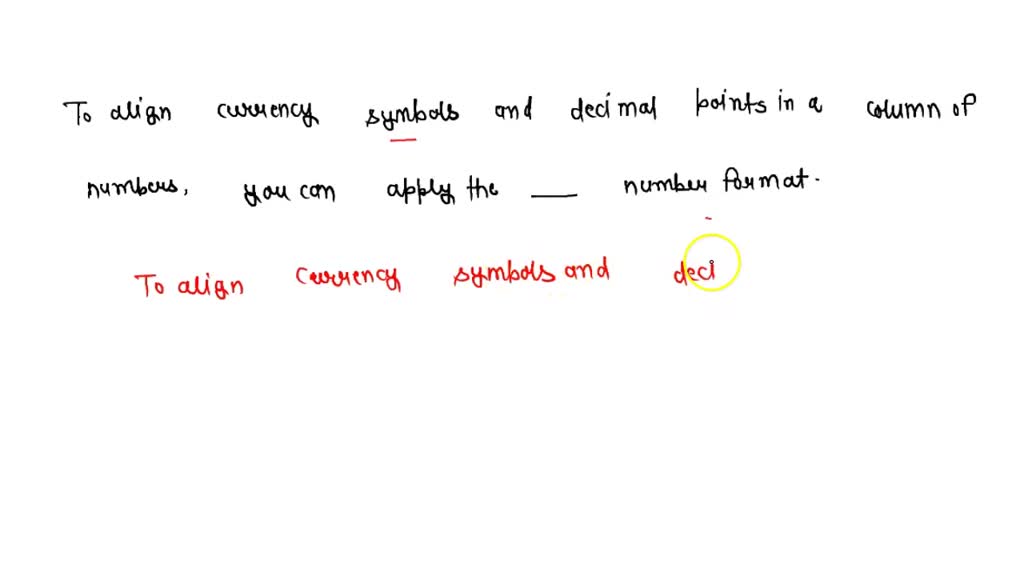 To align currency symbols and decimal points in a column of
numbers, you can apply the ___ number format.
To align currency symbols and deci